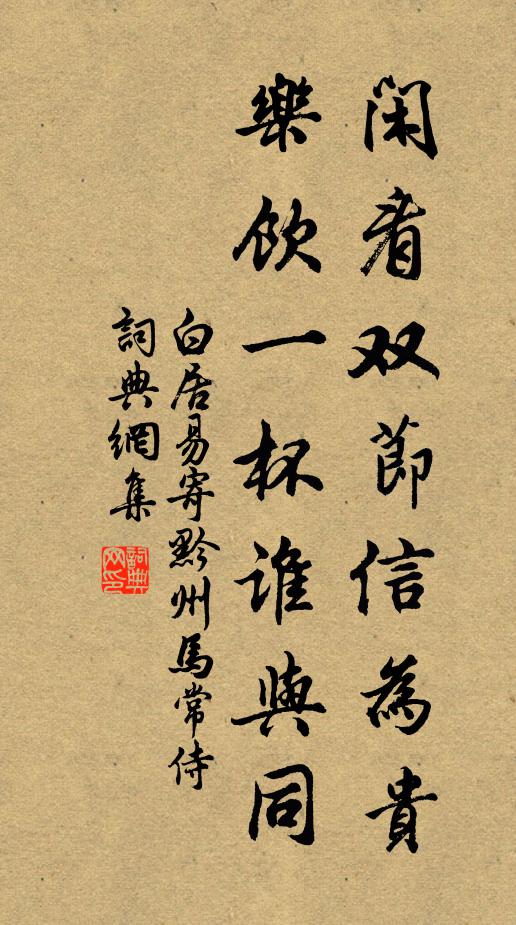 闲看双節信為貴
樂飲一杯誰與同
白居易寄黔州馬常侍
詞典網集
詞典
网印